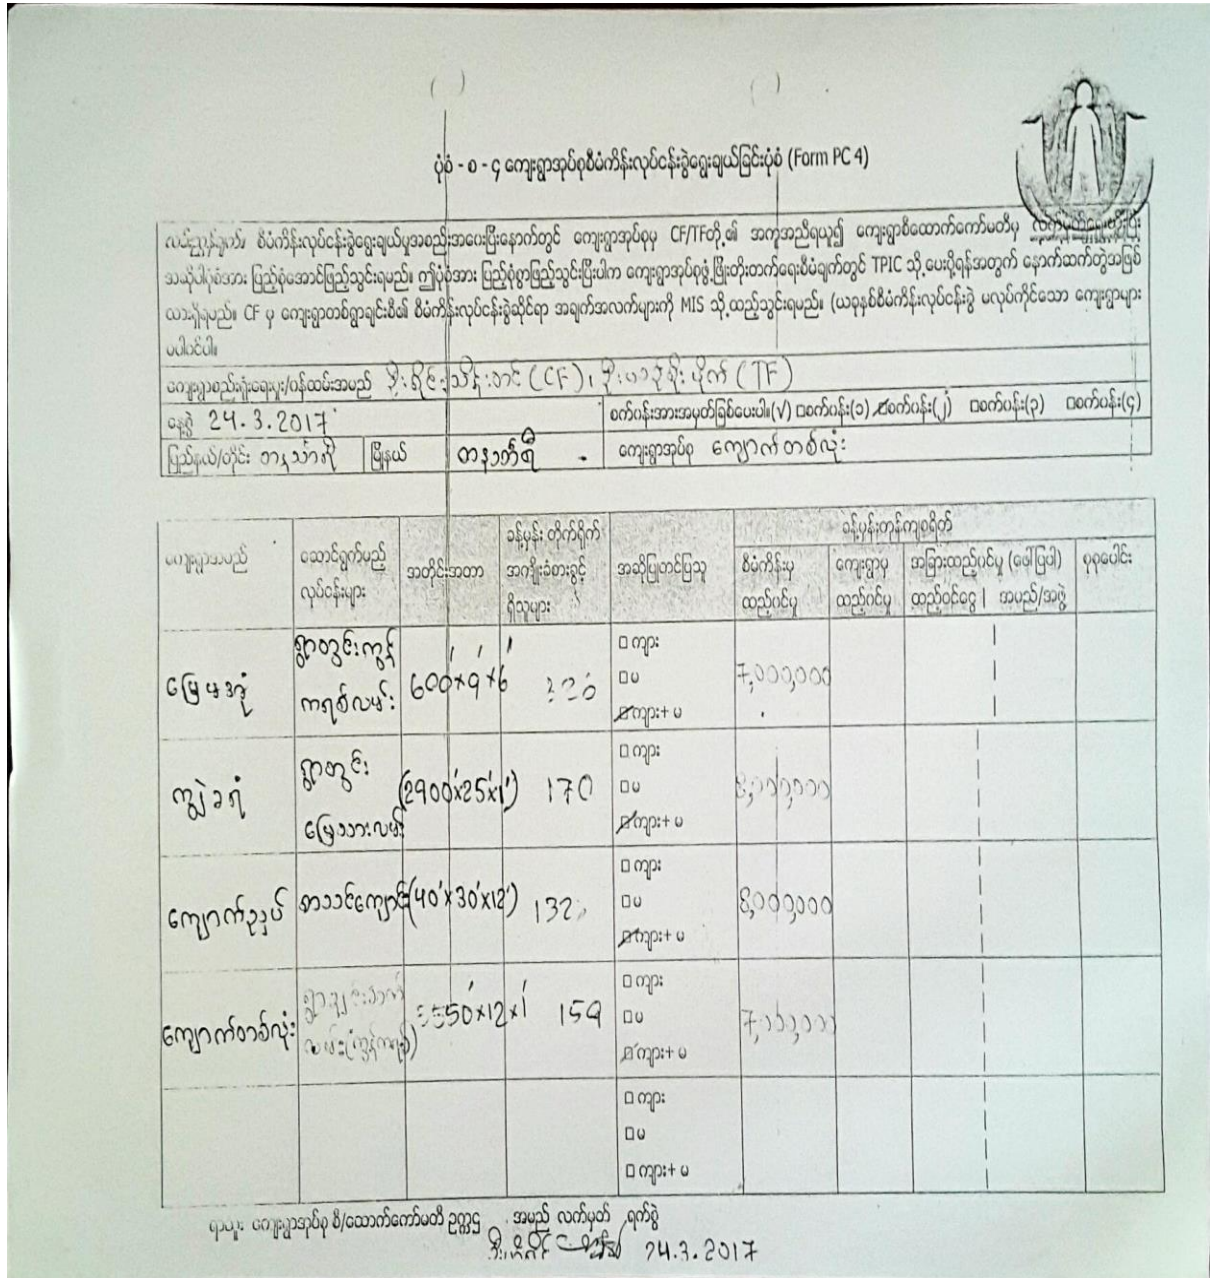 ပုံစံ - စ - ၄ ကျေးရွာအုပ်စုစီမံကိန်းလုပ်ငန်းခွဲရွေးချယ်ခြင်းပုံစံ (Form PC 4)
လမ်းညွှန်ချက်၊ စီမံကိန်းလုပ်ငန်းခွဲရွေးချယ်မှုအစည်းအဝေးပြီးနောက်တွင် ကျေးရွာအုပ်စုမှ CF/TFတို့၏ အကူအညီရယူ၍ ကျေးရွာစီထောက်ကော်မတီမှ
အဆိုပါပုံစံအား ပြည့်စုံအောင်ဖြည့်သွင်းရမည်။ ဤပုံစံအား ပြည့်စုံစွာဖြည့်သွင်းပြီးပါက ကျေးရွာအုပ်စုဖွံ့ဖြိုးတိုးတက်ရေးစီမံချက်တွင် TPIC သို့ ပေးပို့ရန်အတွက် နောက်ဆက်တွဲအဖြစ်
ထားရှိရမည်။ CF မှ ကျေးရွာတစ်ရွာချင်းစီ၏ စီမံကိန်းလုပ်ငန်းခွဲဆိုင်ရာ အချက်အလက်များကို MIS သို့ ထည့်သွင်းရမည်။ (ယခုနှစ်စီမံကိန်းလုပ်ငန်းခွဲ မလုပ်ကိုင်သော ကျေးရွာများ
မပါဝင်ပါ။
ကျေးရွာစည်းရုံးရေးမှူး/ဝန်ထမ်းအမည် (CF) ၊ (TF)
နေ့စွဲ 24.3.2017 စက်ဝန်းအားအမှတ်ခြစ်ပေးပါ။(√) □စက်ဝန်း(၁) ☑စက်ဝန်း(၂) □စက်ဝန်း(၃) □စက်ဝန်း(၄)
ပြည်နယ်/တိုင်း တနင်္သာရီ မြို့နယ် တနင်္သာရီ ကျေးရွာအုပ်စု ကျောက်တစ်လုံး
ခန့်မှန်းကုန်ကျစရိတ်
ကျေးရွာအမည် ဆောင်ရွက်မည့် လုပ်ငန်းများ အတိုင်းအတာ ခန့်မှန်း တိုက်ရိုက် အကျိုးခံစားခွင့် ရှိသူများ အဆိုပြုတင်ပြသူ စီမံကိန်းမှ ထည့်ဝင်မှု ကျေးရွာမှ ထည့်ဝင်မှု အခြားထည့်ဝင်မှု (ဖော်ပြပါ) ထည့်ဝင်ငွေ | အမည်/အဖွဲ့ စုစုပေါင်း
ရွာတွင်းကွန် □ ကျား
ကရစ်လမ်း 600'x9'x6' □ မ 7,000,000
☑ကျား+ မ
ရွာတွင်း □ ကျား
ကျွဲခရံ (2900'x25'x1') 170 □ မ 8,000,000
မြေသားလမ်း ☑ကျား+ မ
□ ကျား
စာသင်ကျောင်း (40'x30'x12') 132 □ မ 8,000,000
☑ကျား+ မ
□ ကျား
ကျောက်တစ်လုံး 159 □ မ 7,000,000
☑ကျား+ မ
□ ကျား
□ မ
□ ကျား+ မ
ကျေးရွာအုပ်စု စီ/ထောက်ကော်မတီ ဥက္ကဋ္ဌ အမည် လက်မှတ် ရက်စွဲ
24.3.2017